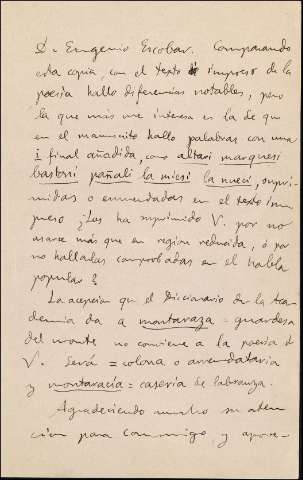 D. Eugenio Escobar. Comparando
esta copia, con el texto impreso de la
poesia hallo diferencias notables, pero
la que más me interesa es la de que
en el manuscrito hallo palabras con una
i final añadida, como altari marquesi
bastori pañali la miesi la nueci, supri-
midas o enmendadas en el texto im-
preso ¿Las ha suprimido V. por no
usarse más que en region reducida, ó por
no hallarlas comprobadas en el habla
popular?
La acepcion que el Diccionario de la Aca-
demia da a montaraza = guardesa
del monte no conviene a la poesia de
V. Será = colona o arrendataria
y montaracía = caseria de labranza.
Agradeciendo mucho su aten-
cion para conmigo y aprove-